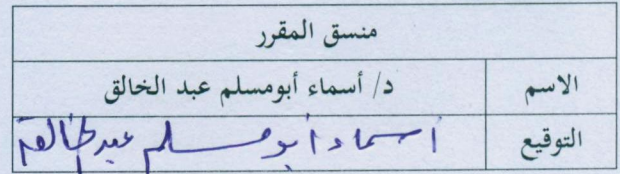 منسق المقرر
الاسم د/ أسماء أبومسلم عبد الخالق
التوقيع أسماء أبو مسلم عبد الخالق